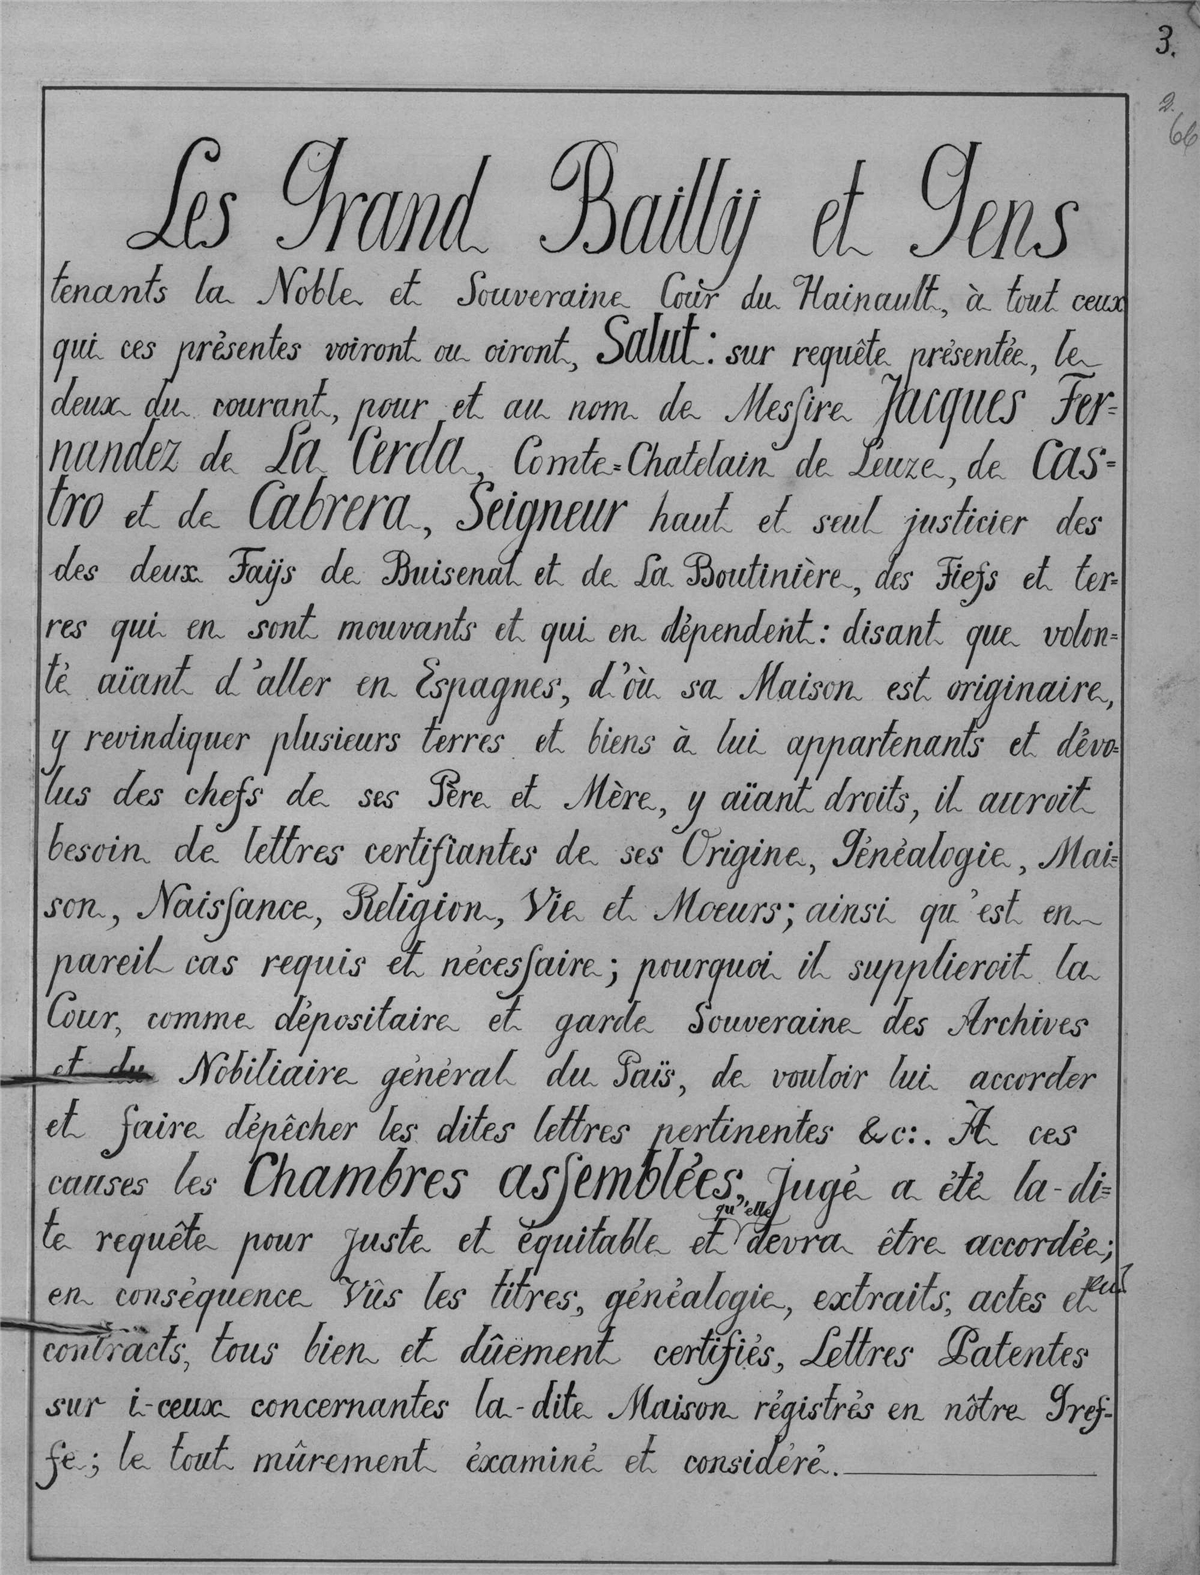 3.
2.
66
Les Grand Baillÿ et Gens
tenants la Noble et Souveraine Cour du Hainault, à tout ceux
qui ces présentes voiront ou oiront, Salut: sur requête présentée, le
deux du courant, pour et au nom de Messire Jacques Fer=
nandez de La Cerda, Comte=Chatelain de Leuze, de Cas=
tro et de Cabrera, Seigneur haut et seul justicier des
des deux Faÿs de Buisenal et de La Boutinière, des Fiefs et ter=
res qui en sont mouvants et qui en dépendent: disant que volon=
té aïant d'aller en Espagnes, d'où sa Maison est originaire,
y revindiquer plusieurs terres et biens à lui appartenants et dévo=
lus des chefs de ses Père et Mère, y aïant droits, il auroit
besoin de lettres certifiantes de ses Origine, Généalogie, Mai=
son, Naissance, Religion, Vie et Moeurs; ainsi qu'est en
pareil cas requis et nécessaire; pourquoi il supplieroit la
Cour, comme dépositaire et garde Souveraine des Archives
et du Nobiliaire général du Païs, de vouloir lui accorder
et faire dépêcher les dites lettres pertinentes &c:. À ces
causes les Chambres assemblées, Jugé a été la-di=
te requête pour juste et équitable et qu'elle devra être accordée;
en conséquence Vûs les titres, généalogie, extraits, actes et
contracts, tous bien et dûëment certifiés, Lettres Patentes
sur i-ceux concernantes la-dite Maison régistrés en nôtre Gref-
fe; le tout mûrement éxaminé et considéré.